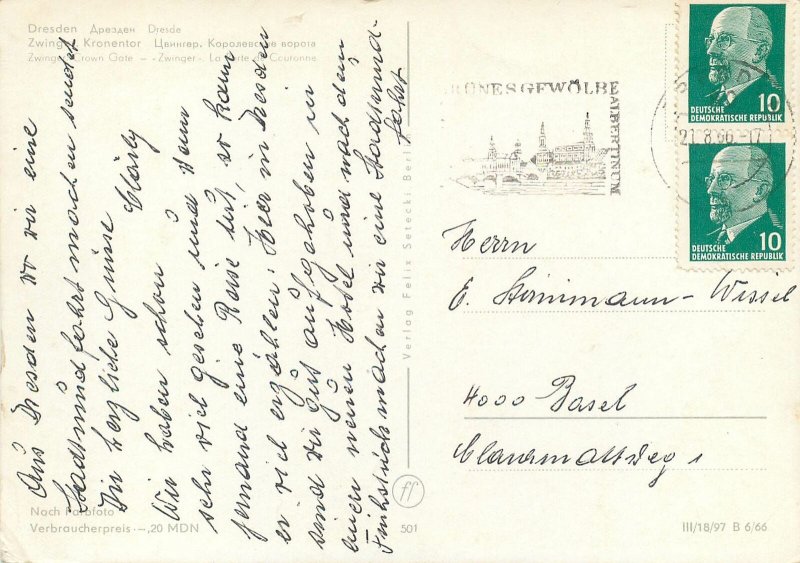 Dresden Дрезден Dresde
Zwinger Kronentor Цвингер. Королевские ворота
Zwinger Crown Gate — «Zwinger» La Porte de Couronne
Aus Dresden wo wir eine
Stadtrundfahrt machen sendet
Dir herzliche Grüsse Cläry
Wir haben schon
sehr viel gesehen und wenn
jemand eine Reise tut, so kann
er viel erzählen. Hier in Dresden
sind wir gut aufgehoben in
einem neuen Hotel und nach dem
Frühstück machen wir eine Stadtrund-
fahrt
Noch Farbfoto
Verbraucherpreis -,20 MDN
501
Verlag Felix Setecki Berlin
ff
GRÜNES GEWÖLBE
ALBERTINUM
21.8.66-17
DEUTSCHE
DEMOKRATISCHE REPUBLIK
10
DEUTSCHE
DEMOKRATISCHE REPUBLIK
10
Herrn
E. Steinmann-Wissel
4000 Basel
III/18/97 B 6/66